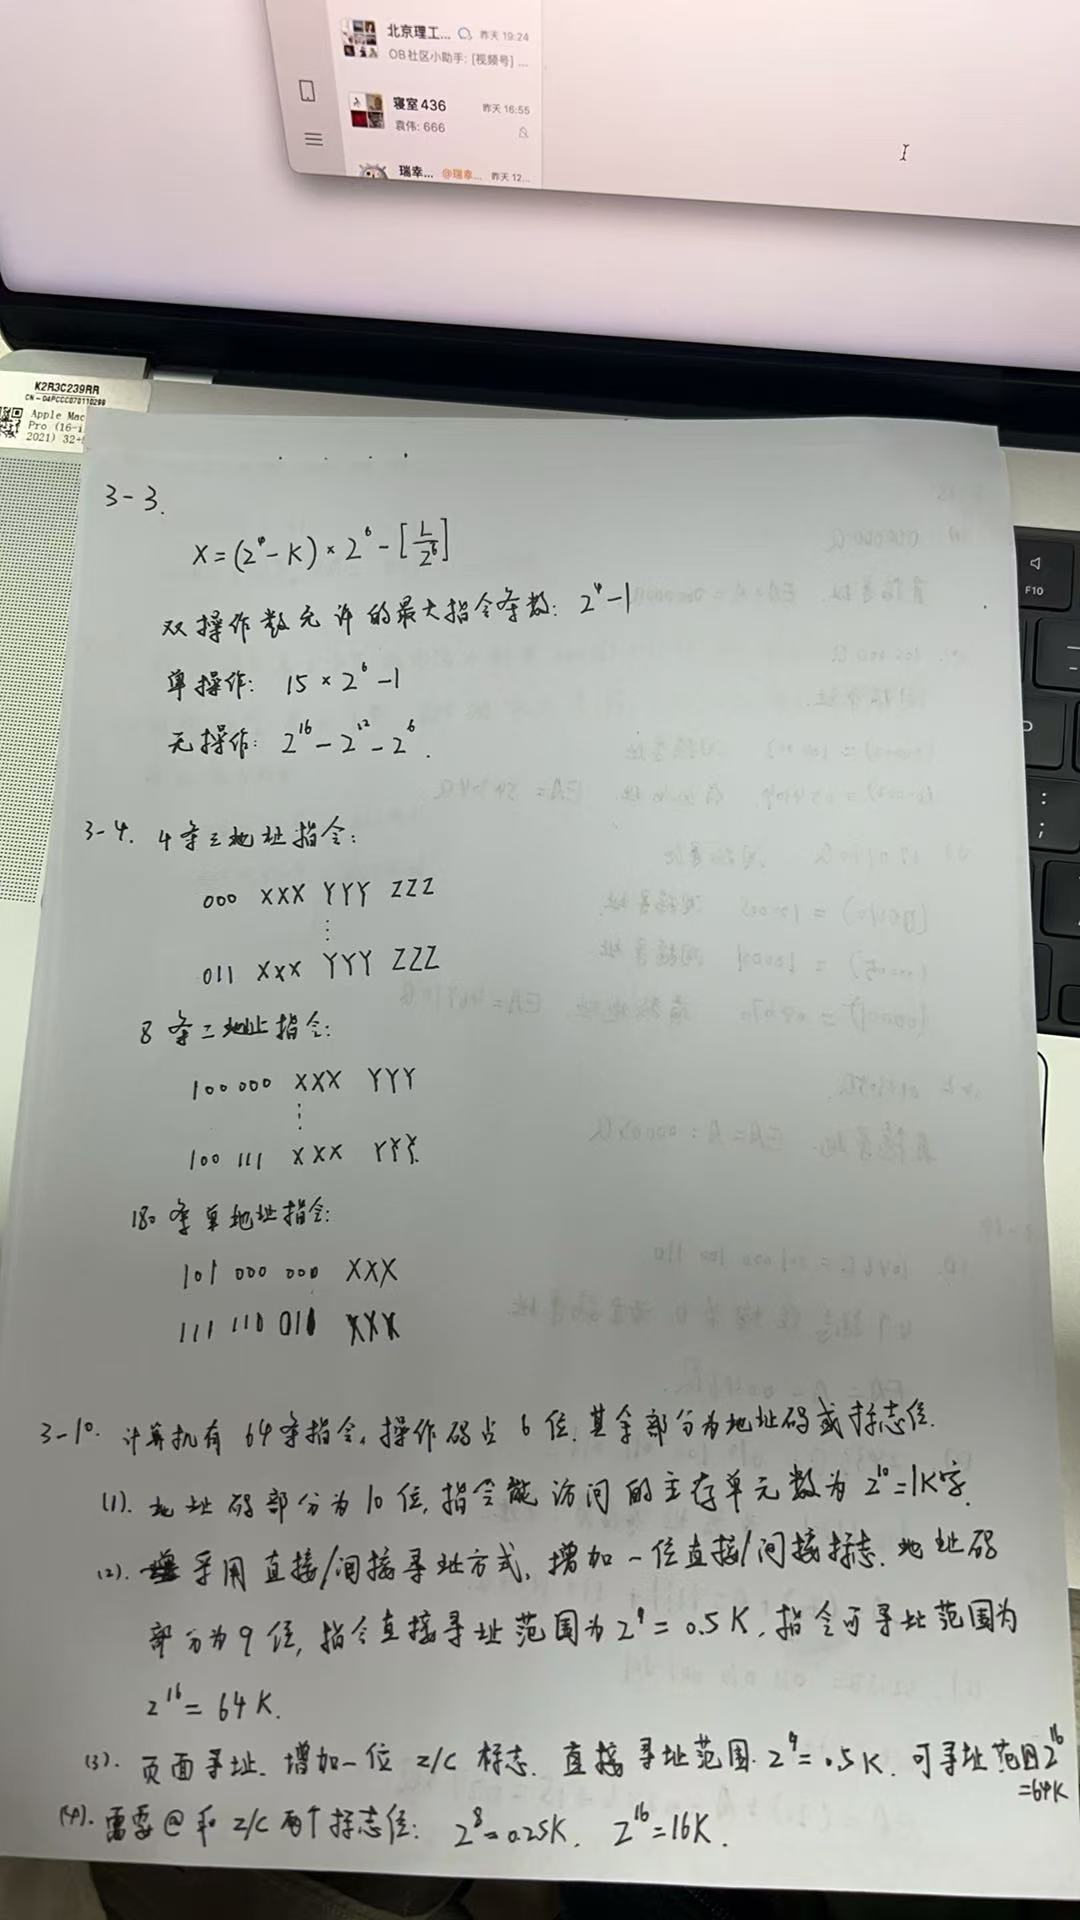 北京理工... 昨天 19:24
OB社区小助手: [视频号] ...
寝室436 昨天 16:55
袁伟: 666
瑞幸... @瑞幸... 昨天 12...
K2R3C239RR
CN-04PCCC070110299
Apple Mac
Pro (16-i
2021) 32+
F10
3-3.
X=(2⁴-K)×2⁶-[L/2⁶]
双操作数允许的最大指令条数: 2⁴-1
单操作: 15×2⁶-1
无操作: 2¹⁶-2¹²-2⁶.
3-4. 4条三地址指令:
000 XXX YYY ZZZ
⋮
011 XXX YYY ZZZ
8条二地址指令:
100 000 XXX YYY
⋮
100 111 XXX YYY
180条单地址指令:
101 000 000 XXX
111 110 011 XXX
3-10. 计算机有64条指令, 操作码占6位, 其余部分为地址码或标志位.
(1). 地址码部分为10位, 指令能访问的主存单元数为2¹⁰=1K字.
(2). 采用直接/间接寻址方式, 增加一位直接/间接标志. 地址码
部分为9位, 指令直接寻址范围为2⁹=0.5K, 指令可寻址范围为
2¹⁶=64K.
(3). 页面寻址. 增加一位Z/C标志. 直接寻址范围. 2⁹=0.5K. 可寻址范围2¹⁶
=64K
(4). 需要@和Z/C两个标志位: 2⁸=0.25K. 2¹⁶=16K.